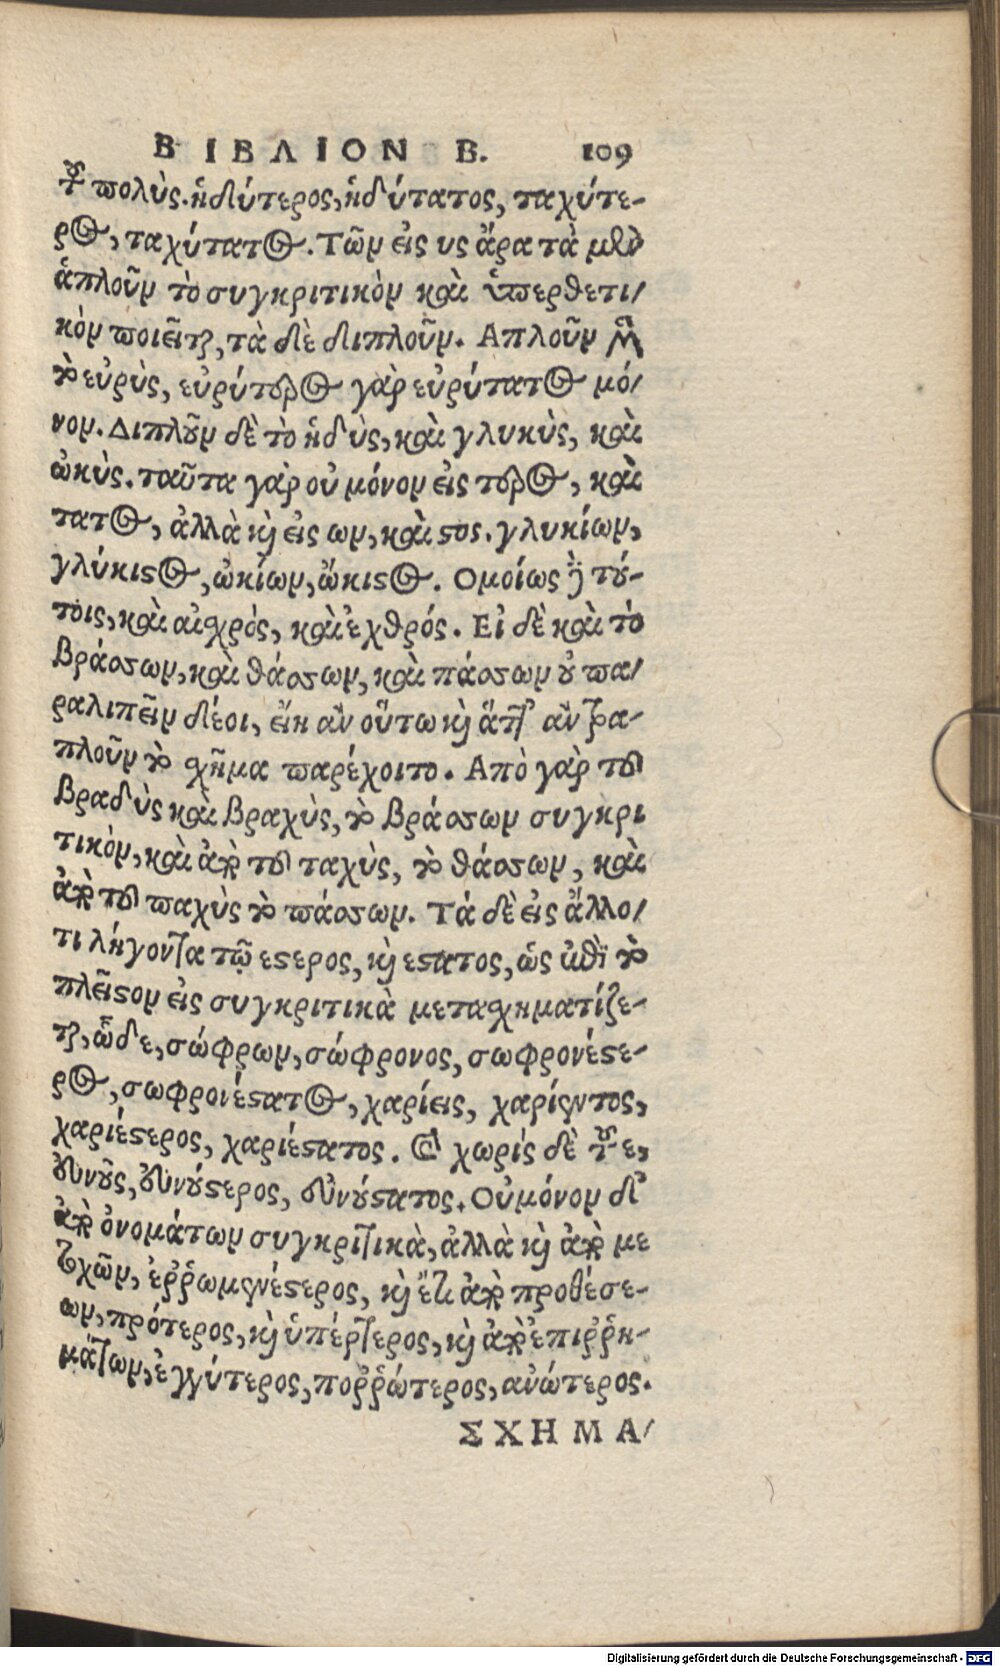 ΒΙΒΛΙΟΝ Β. 109
τοῦ πολὺς. ἡδύτερος, ἡδύτατος, ταχύτε-
ρος, ταχύτατος. Τῶν εἰς υς ἄρα τὰ μὲν
ἁπλοῦν τὸ συγκριτικὸν καὶ ὑπερθετι/
κὸν ποιεῖται, τὰ δὲ διπλοῦν. Απλοῦν μὲν
τὸ εὐρὺς, εὐρύτερος γὰρ εὐρύτατος μό/
νον. Διπλοῦν δὲ τὸ ἡδὺς, καὶ γλυκὺς, καὶ
ὠκὺς. ταῦτα γὰρ οὐ μόνον εἰς τερος, καὶ
τατος, ἀλλὰ καὶ εἰς ων, καὶ στος. γλυκίων,
γλύκιστος, ὠκίων, ὤκιστος. Ομοίως δὲ τού-
τοις, καὶ αἰσχρός, καὶ ἐχθρός. Εἰ δὲ καὶ τὸ
βράσσων, καὶ θάσσων, καὶ πάσσων οὐ πα/
ραλιπεῖν δέοι, εἴη ἂν οὕτω καὶ ἅττ' ἂν τρα-
πλοῦν τὸ σχῆμα παρέχοιτο. Απὸ γὰρ τοῦ
βραδὺς καὶ βραχὺς, τὸ βράσσων συγκρι
τικὸν, καὶ ἀπὸ τοῦ ταχὺς, τὸ θάσσων, καὶ
ἀπὸ τοῦ παχὺς τὸ πάσσων. Τὰ δὲ εἰς ἄλλο/
τι λήγοντα τῷ εστερος, καὶ εστατος, ὡς ἐπὶ τὸ
πλεῖστον εἰς συγκριτικὰ μετασχηματίζε-
ται, ὧδε, σώφρων, σώφρονος, σωφρονέστε-
ρος, σωφρονέστατος, χαρίεις, χαρίεντος,
χαριέστερος, χαριέστατος. Καὶ χωρὶς δὲ τοῦ ε,
εὐνοῦς, εὐνούστερος, εὐνούστατος. Οὐ μόνον δὲ
ἀπὸ ὀνομάτων συγκριτικὰ, ἀλλὰ καὶ ἀπὸ με
τοχῶν, ἐῤῥωμενέστερος, καὶ ἔτι ἀπὸ προθέσε-
ων, πρότερος, καὶ ὑπέρτερος, καὶ ἀπὸ ἐπιῤῥη-
μάτων, ἐγγύτερος, ποῤῥώτερος, ἀνώτερος.
ΣΧΗΜΑ/
Digitalisierung gefördert durch die Deutsche Forschungsgemeinschaft - DFG